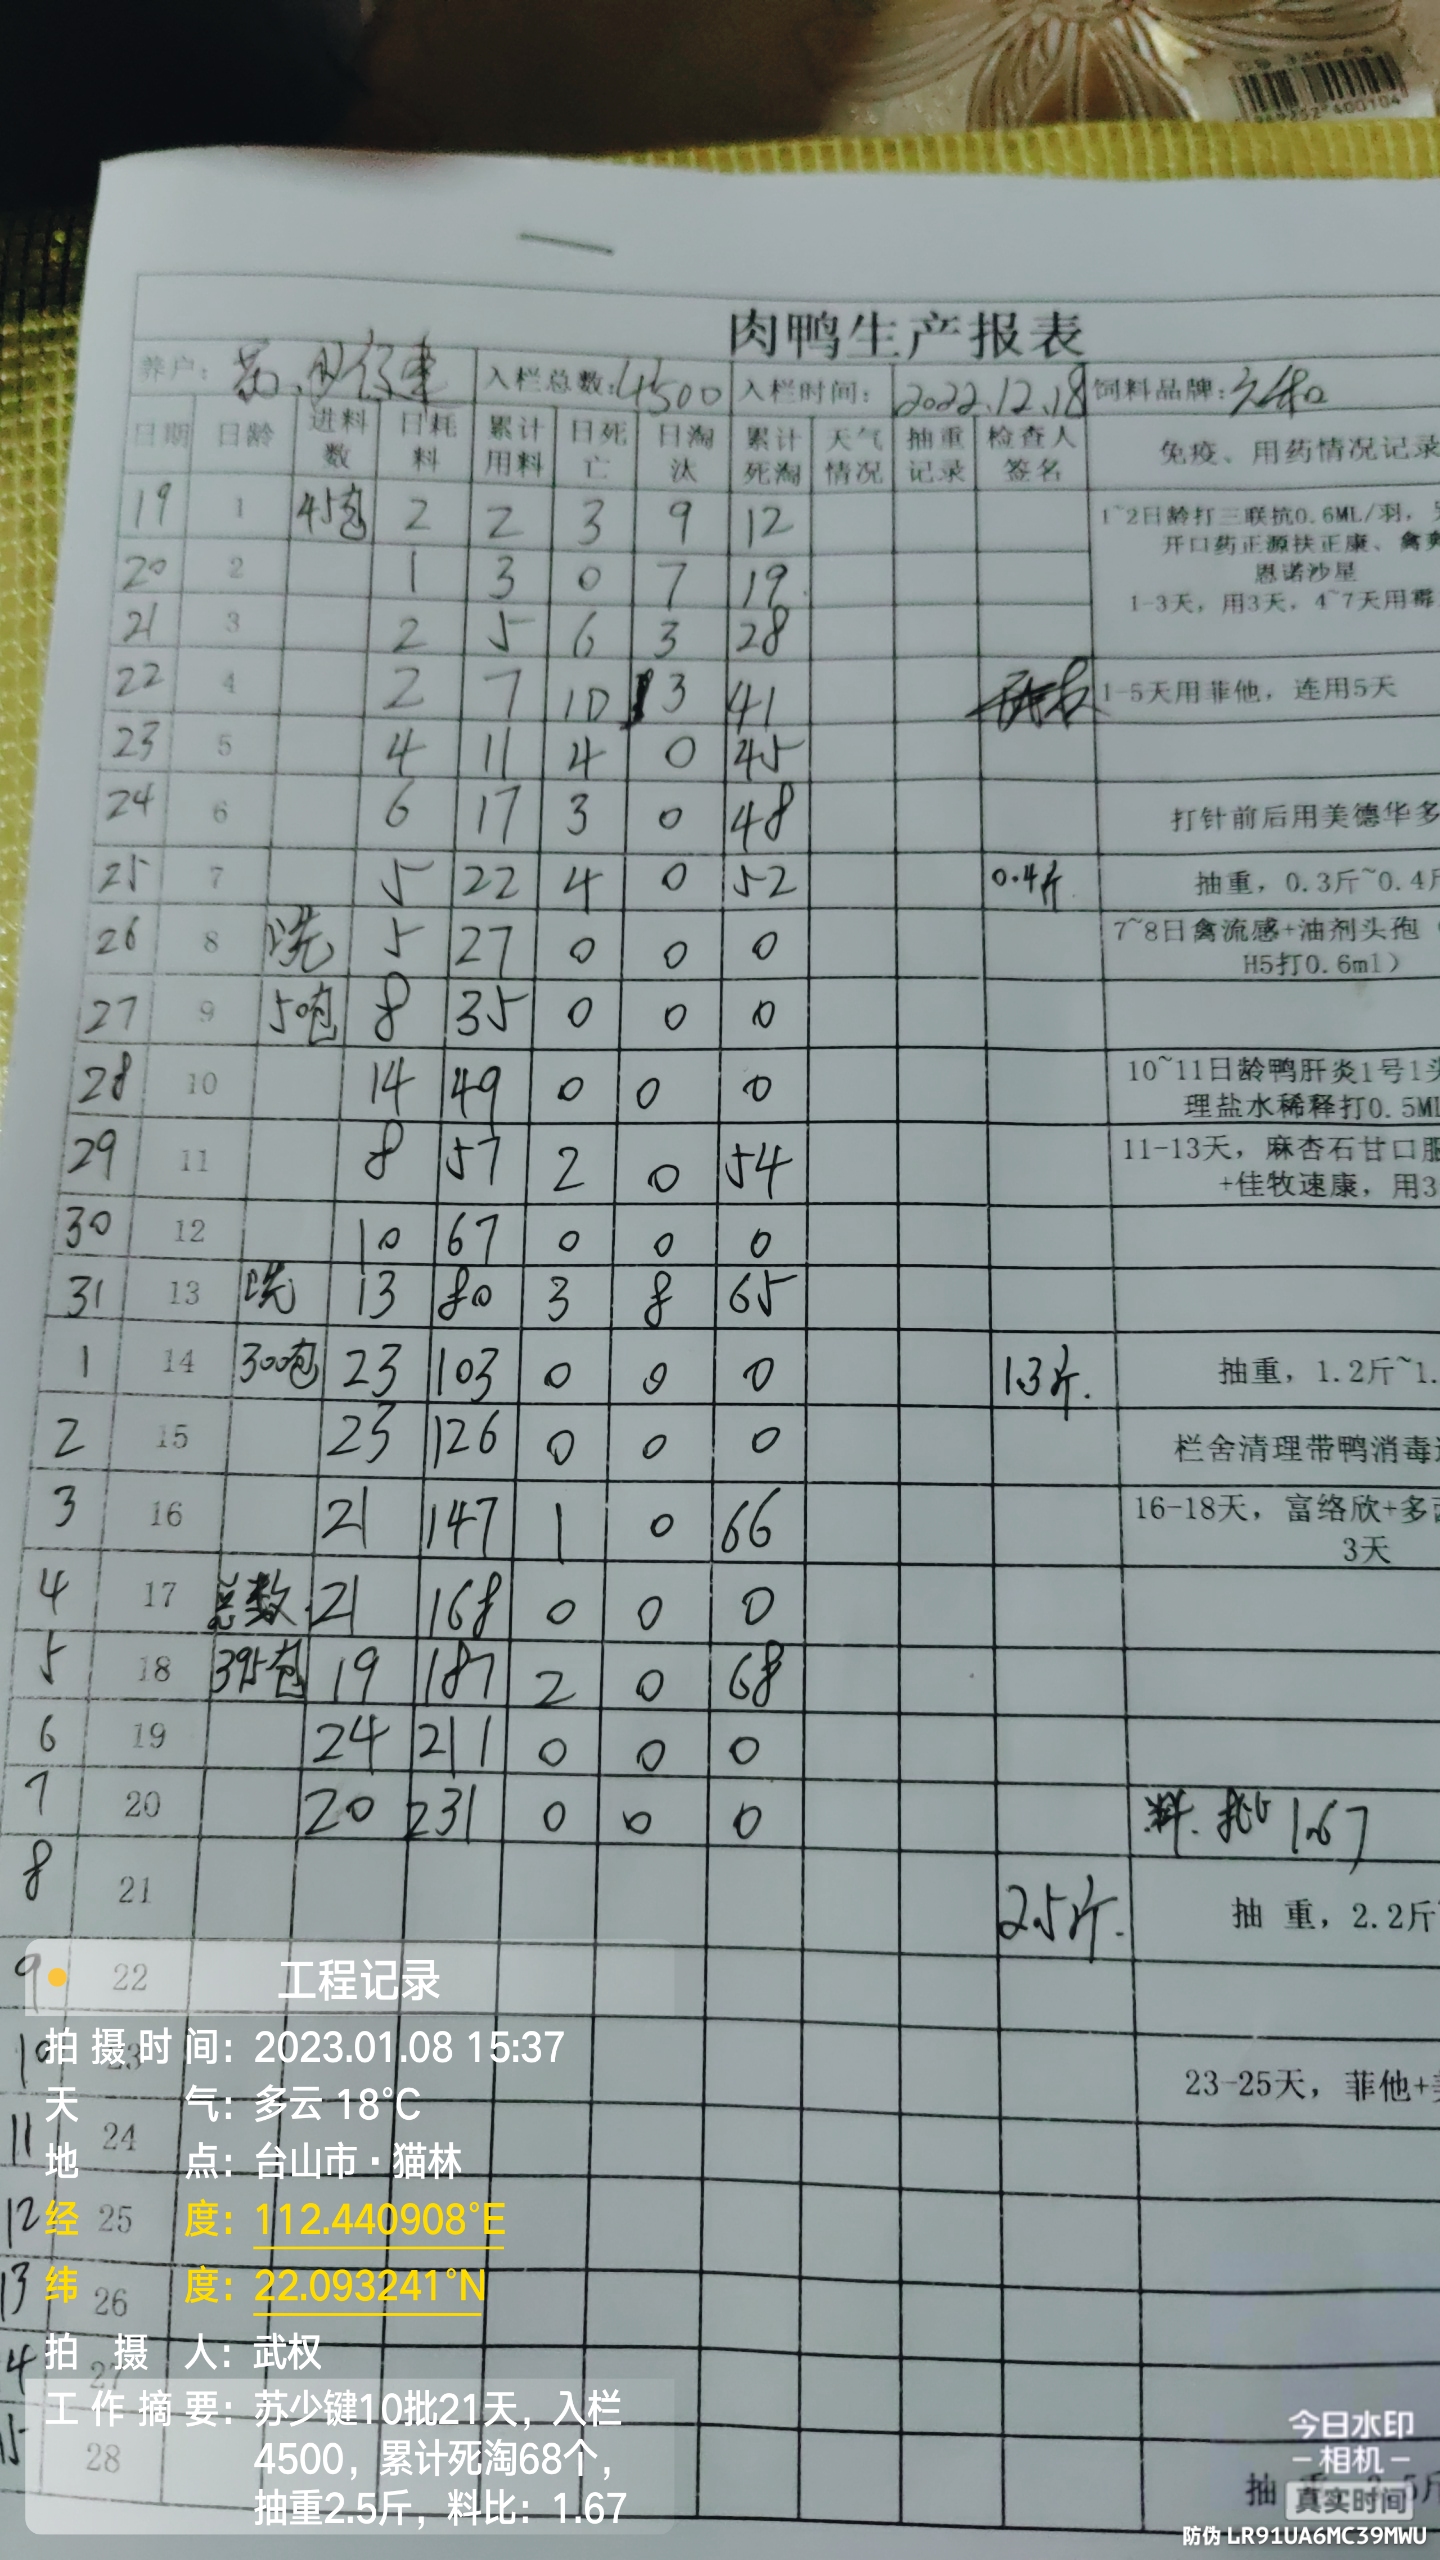 肉鸭生产报表
养户: 苏 入栏总数:4500 入栏时间: 2022.12.18 饲料品牌:
日期 日龄 进料数 日耗料 累计用料 日死亡 日淘汰 累计死淘 天气情况 抽重记录 检查人签名 免疫、用药情况记录
19 1 45包 2 2 3 9 12 1~2日龄打三联抗0.6ML/羽,
开口药正源扶正康、禽
恩诺沙星
1-3天，用3天，4~7天用霉
20 2 1 3 0 7 19
21 3 2 5 6 3 28
22 4 2 7 10 3 41 1-5天用菲他，连用5天
23 5 4 11 4 0 45
24 6 6 17 3 0 48 打针前后用美德华多
25 7 5 22 4 0 52 0.4斤 抽重，0.3斤~0.4斤
26 8 5 27 0 0 0 7~8日禽流感+油剂头孢
H5打0.6ml）
27 9 50包 8 35 0 0 0
28 10 14 49 0 0 0 10~11日龄鸭肝炎1号1头
理盐水稀释打0.5ML
29 11 8 57 2 0 54 11-13天，麻杏石甘口服
+佳牧速康，用3
30 12 10 67 0 0 0
31 13 13 80 3 8 65
1 14 300包 23 103 0 0 0 1.3斤. 抽重，1.2斤~1.
2 15 23 126 0 0 0 栏舍清理带鸭消毒
3 16 21 147 1 0 66 16-18天，富络欣+多
3天
4 17 总数 21 168 0 0 0
5 18 395包 19 187 2 0 68
6 19 24 211 0 0 0
7 20 20 231 0 0 0 料 1.67
8 21 2.5斤. 抽 重，2.2斤
9 22
10 23 23-25天，菲他+
11 24
12 25
13 26
14 27
15 28 抽 重
工程记录
拍摄时间：2023.01.08 15:37
天 气：多云 18°C
地 点：台山市·猫林
经 度：112.440908°E
纬 度：22.093241°N
拍 摄 人：武权
工作摘要：苏少键10批21天，入栏
4500，累计死淘68个，
抽重2.5斤，料比：1.67
今日水印
-相机-
真实时间
防伪 LR91UA6MC39MWU